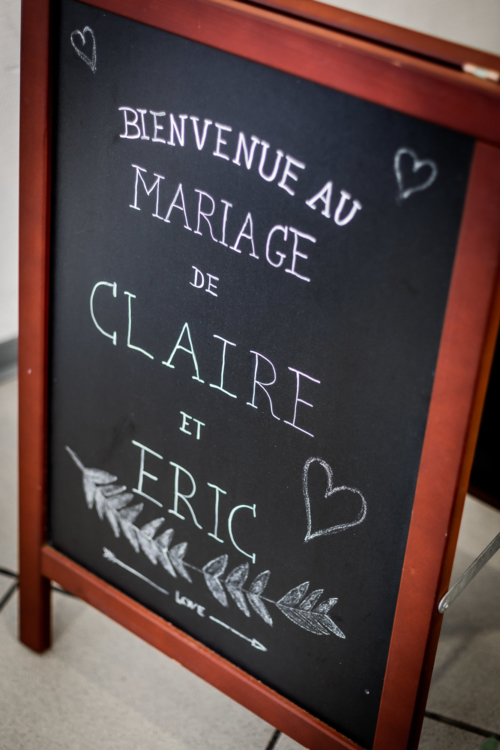 BIENVENUE AU
MARIAGE
DE
CLAIRE
ET
ERIC
LOVE